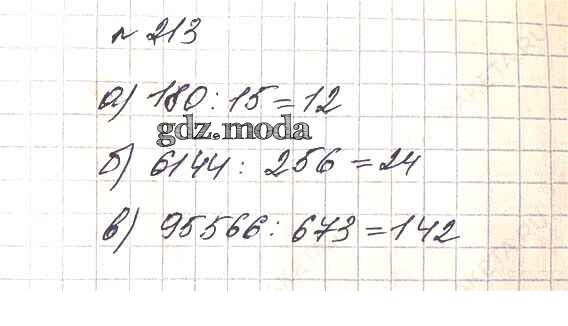 № 213
а) 180 : 15 = 12
gdz.moda
б) 6144 : 256 = 24
в) 95566 : 673 = 142